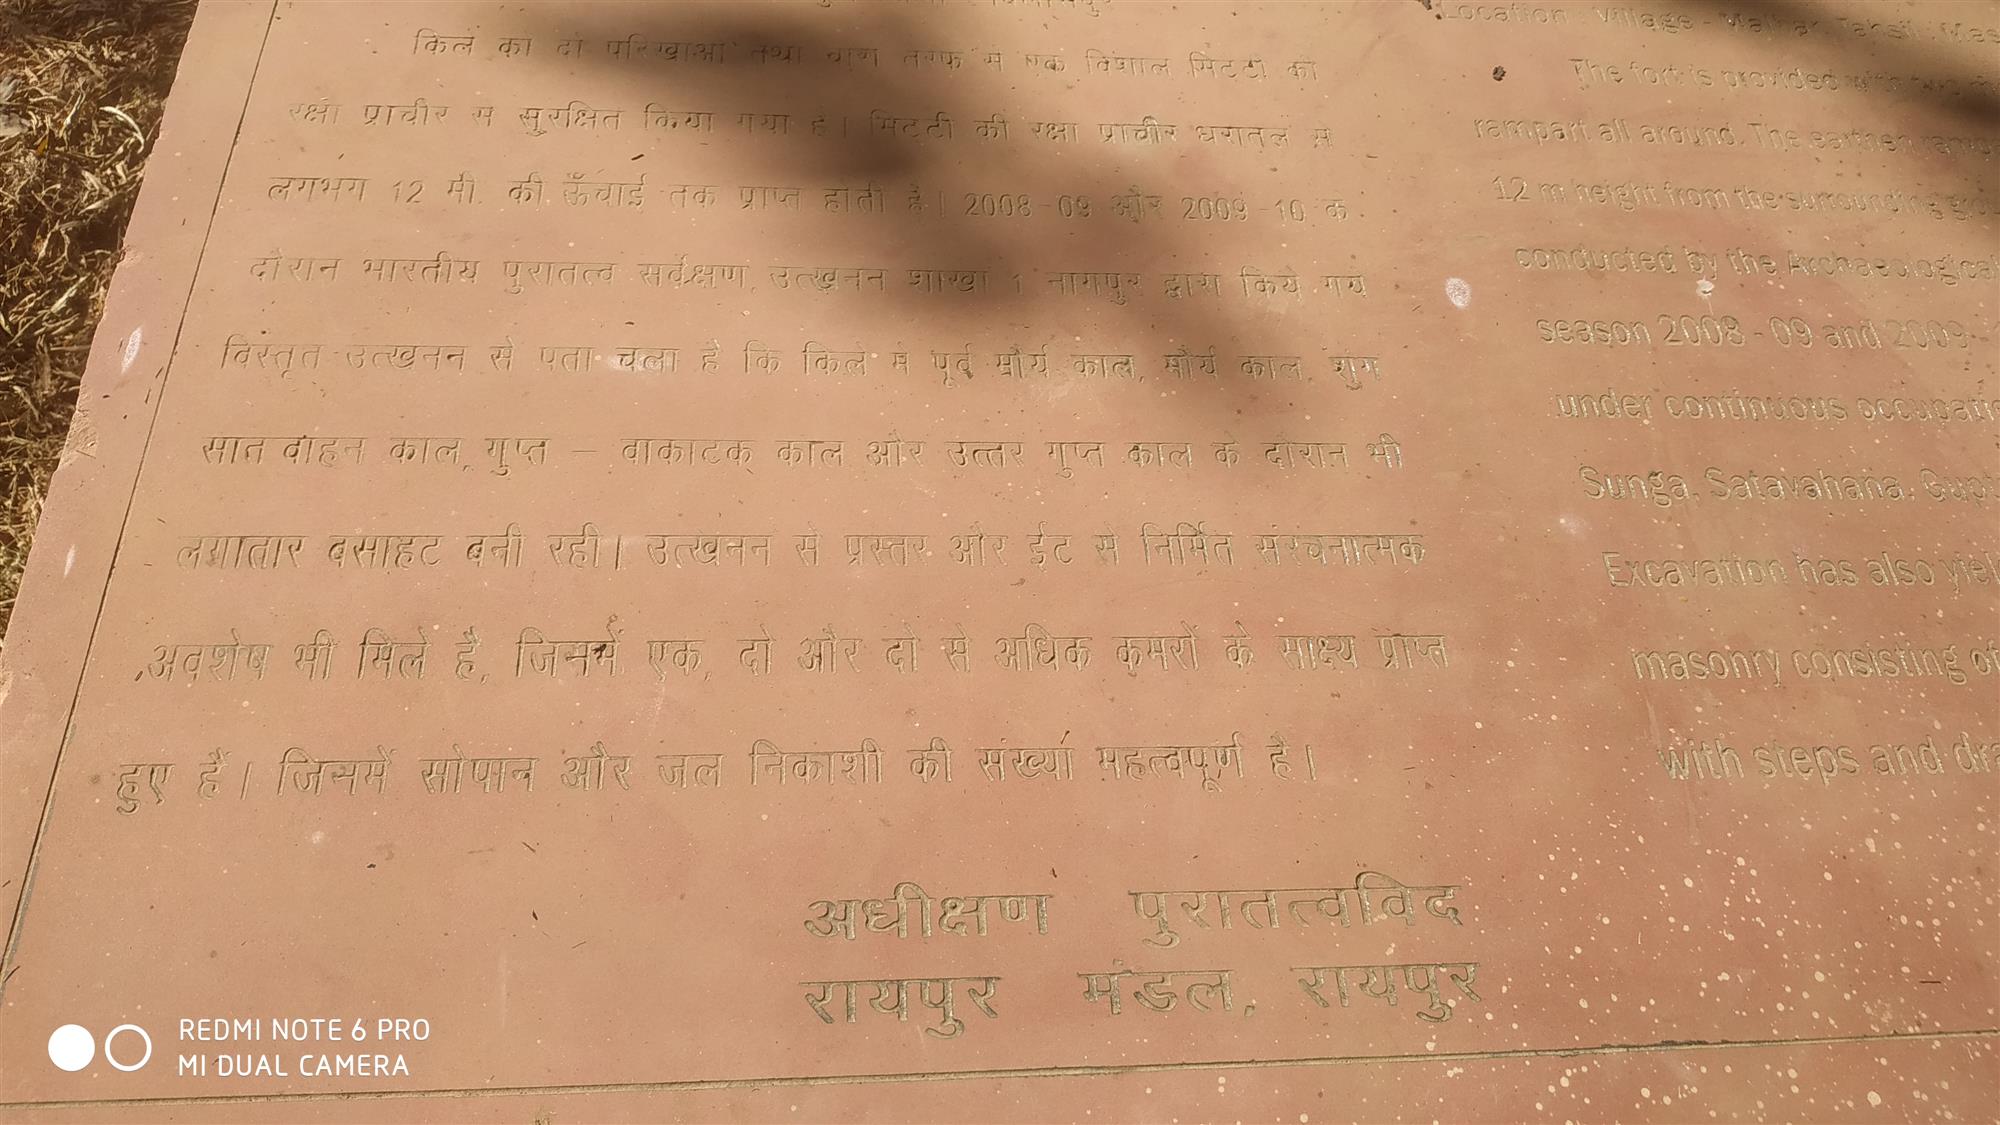 किले को दो परिखाओं तथा चारों तरफ से एक विशाल मिटटी की
रक्षा प्राचीर से सुरक्षित किया गया है। मिटटी की रक्षा प्राचीर धरातल से
लगभग 12 मी. की ऊँचाई तक प्राप्त होती है। 2008-09 और 2009-10 के
दौरान भारतीय पुरातत्व सर्वेक्षण, उत्खनन शाखा 1 नागपुर द्वारा किये गये
विस्तृत उत्खनन से पता चला है कि किले में पूर्व मौर्य काल, मौर्य काल, शुंग
सात वाहन काल, गुप्त – वाकाटक् काल और उत्तर गुप्त काल के दौरान भी
लगातार बसाहट बनी रही। उत्खनन से प्रस्तर और ईट से निर्मित संरचनात्मक
अवशेष भी मिले है, जिनमें एक, दो और दो से अधिक कमरों के साक्ष्य प्राप्त
हुए हैं। जिनमें सोपान और जल निकाशी की संख्या महत्वपूर्ण है।
अधीक्षण पुरातत्वविद
रायपुर मंडल, रायपुर
Location : Village - Malhar, Tahsil : Mas
The fort is provided with two
rampart all around. The earthen
12 m height from the surrounding
conducted by the Archaeological
season 2008 - 09 and 2009 -
under continuous
Sunga, Satavahana,
Excavation has also
masonry consisting of
with steps and
REDMI NOTE 6 PRO
MI DUAL CAMERA